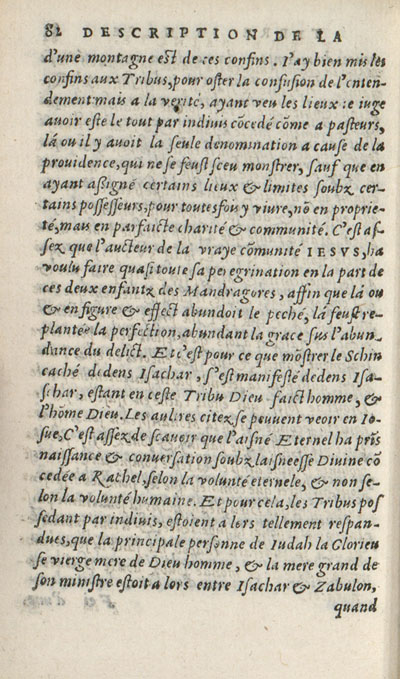 82 DESCRIPTION DE LA
d'une montagne est de ces confins. I'ay bien mis les
confins aux Tribus, pour oster la confusion de l'enten-
dement: mais a la verité, ayant veu les lieux ie iuge
auoir esté le tout par indiuis cõcedé cõme a pasteurs,
lá ou il y auoit la seule denomination a cause de la
prouidence, qui ne se feust sceu monstrer, sauf que en
ayant aßigné certains lieux & limites soubz cer-
tains possesseurs, pour toutesfou y viure, nõ en proprie-
té, mau en parfaicte charité & communité. C'est as-
sez que l'aucteur de la vraye cõmunité IESVS, ha
voulu faire quasi toute sa peregrination en la part de
ces deux enfantz des Mandragores, affin que lá ou
& en figure & effect abundoit le peché, lá feust re-
plantée la perfection, abundant la grace sus l'abun
dance du delict. Et c'est pour ce que mõstrer le Schin
caché dedens Isachar, s'est manifesté dedens Isa-
schar, estant en ceste Tribu Dieu faict homme, &
l'hõme Dieu. Les aultres citez se peuuent veoir en Io-
sue, C'est assez de scauoir que l'aisné Eternel ha pris
naissance & conuersation soubz l'aisneesse Diuine cõ
cedée a Rachel, selon la volunté eternele, & non se-
lon la volunté humaine. Et pour cela, les Tribus pos
sedant par indiuis, estoient a lors tellement respan-
dues, que la principale personne de Iudah la Glorieu
se vierge mere de Dieu homme, & la mere grand de
son ministre estoit a lors entre Isachar & Zabulon,
quand